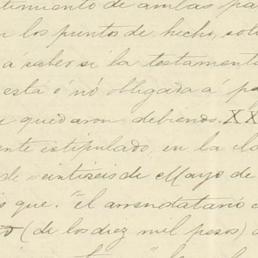 timiento de ambas pa
n los puntos de hecho, sólo
á saber si la testamenta
está ó nó obligada á pa
e quedaron debiendo. XX
ente estipulado, en la clá
de veintiseis de Mayo de
is que. "el arrendatario
(de los diez mil pesos)